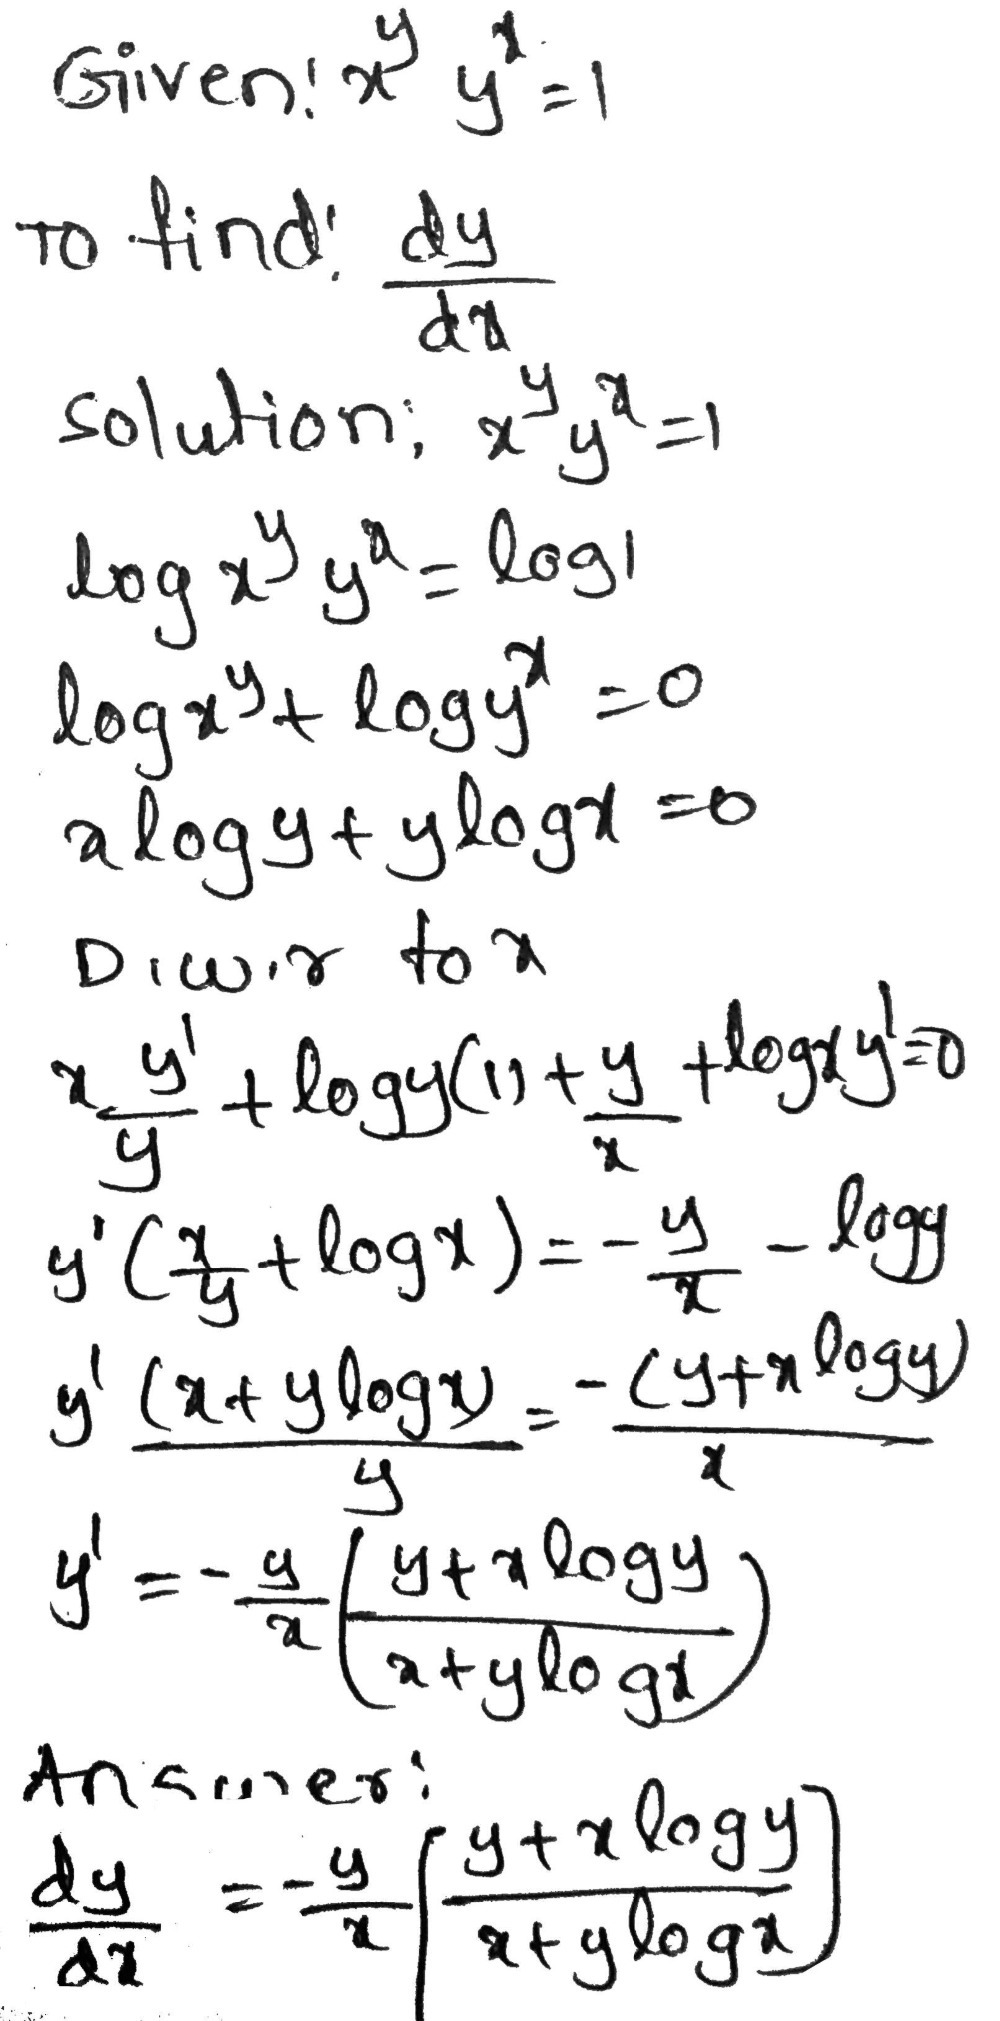 Given: x^y y^x = 1
To find: dy/dx
Solution: x^y y^x = 1
log x^y y^x = log 1
log x^y + log y^x = 0
x log y + y log x = 0
D.w.r to x
x y'/y + log y(1) + y/x + log x y' = 0
y' (x/y + log x) = - y/x - log y
y' (x + y log x)/y = - (y + x log y)/x
y' = - y/x ( (y + x log y)/(x + y log x) )
Answer:
dy/dx = - y/x [ (y + x log y)/(x + y log x) ]